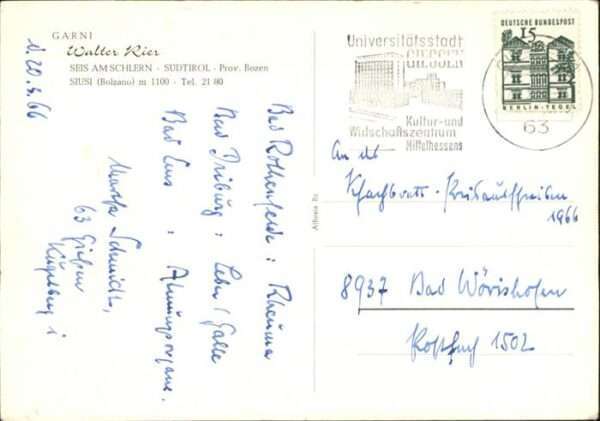 GARNI
Walter Rier
SEIS AM SCHLERN - SÜDTIROL - Prov. Bozen
SIUSI (Bolzano) m 1100 - Tel. 21 80
20.4.66
Bad Rothenfelde : Rheuma
Bad Driburg : Leber / Galle
Bad Ems : Atmungsorgane.
Martha Schmidt,
63 Gießen
Universitätsstadt
GIESSEN
Kultur- und
Wirtschaftszentrum
Mittelhessens
DEUTSCHE BUNDESPOST
15
BERLIN-TEGEL
63
An das
1966
8937 Bad Wörishofen
Postfach 1502